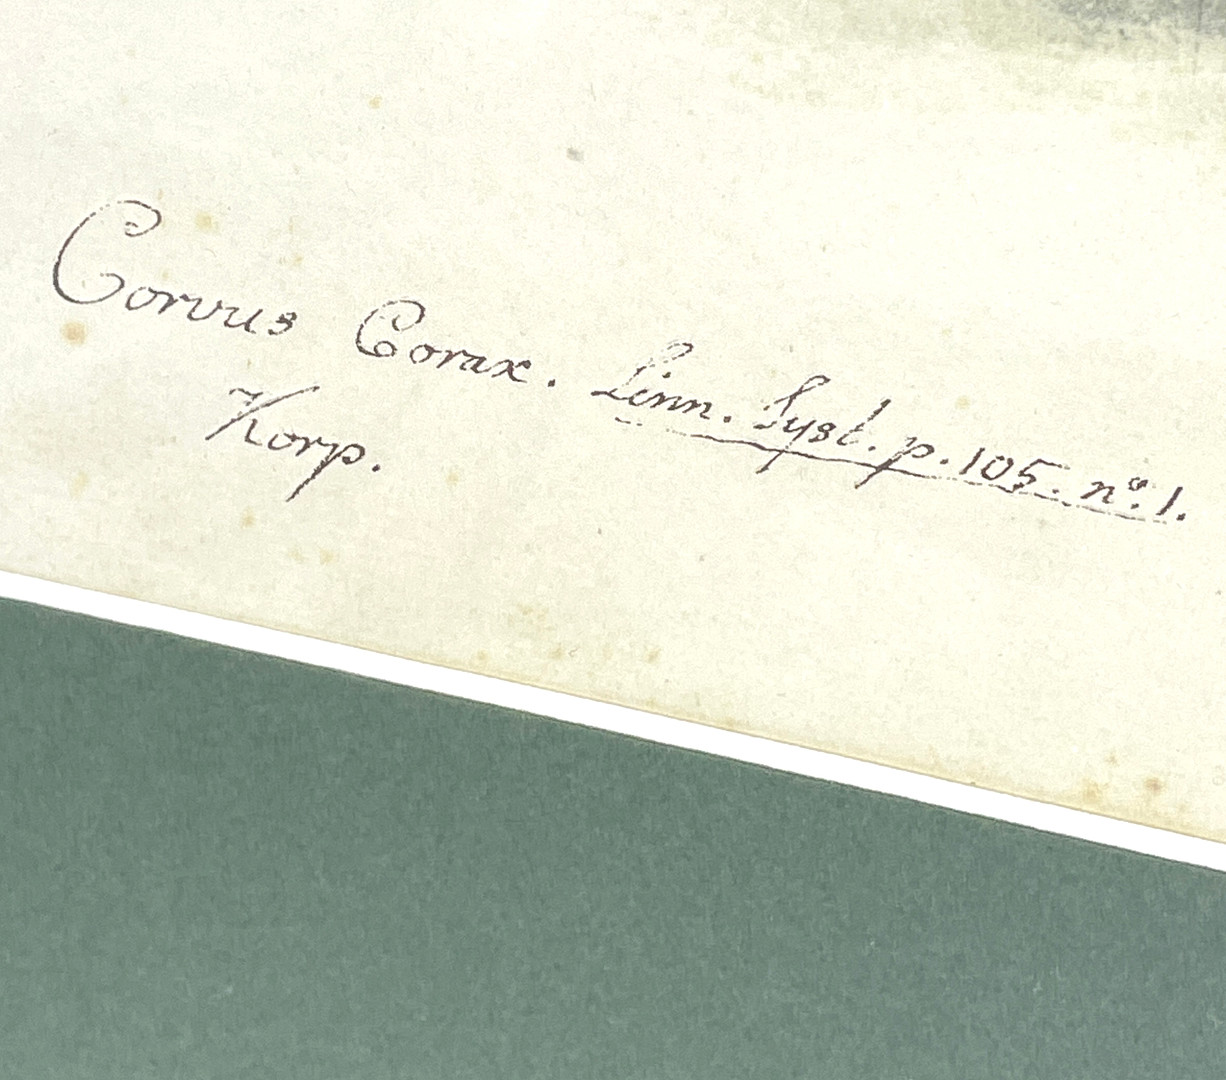 Corvus Corax. Linn. Syst. p. 105. nº. 1.
Korp.